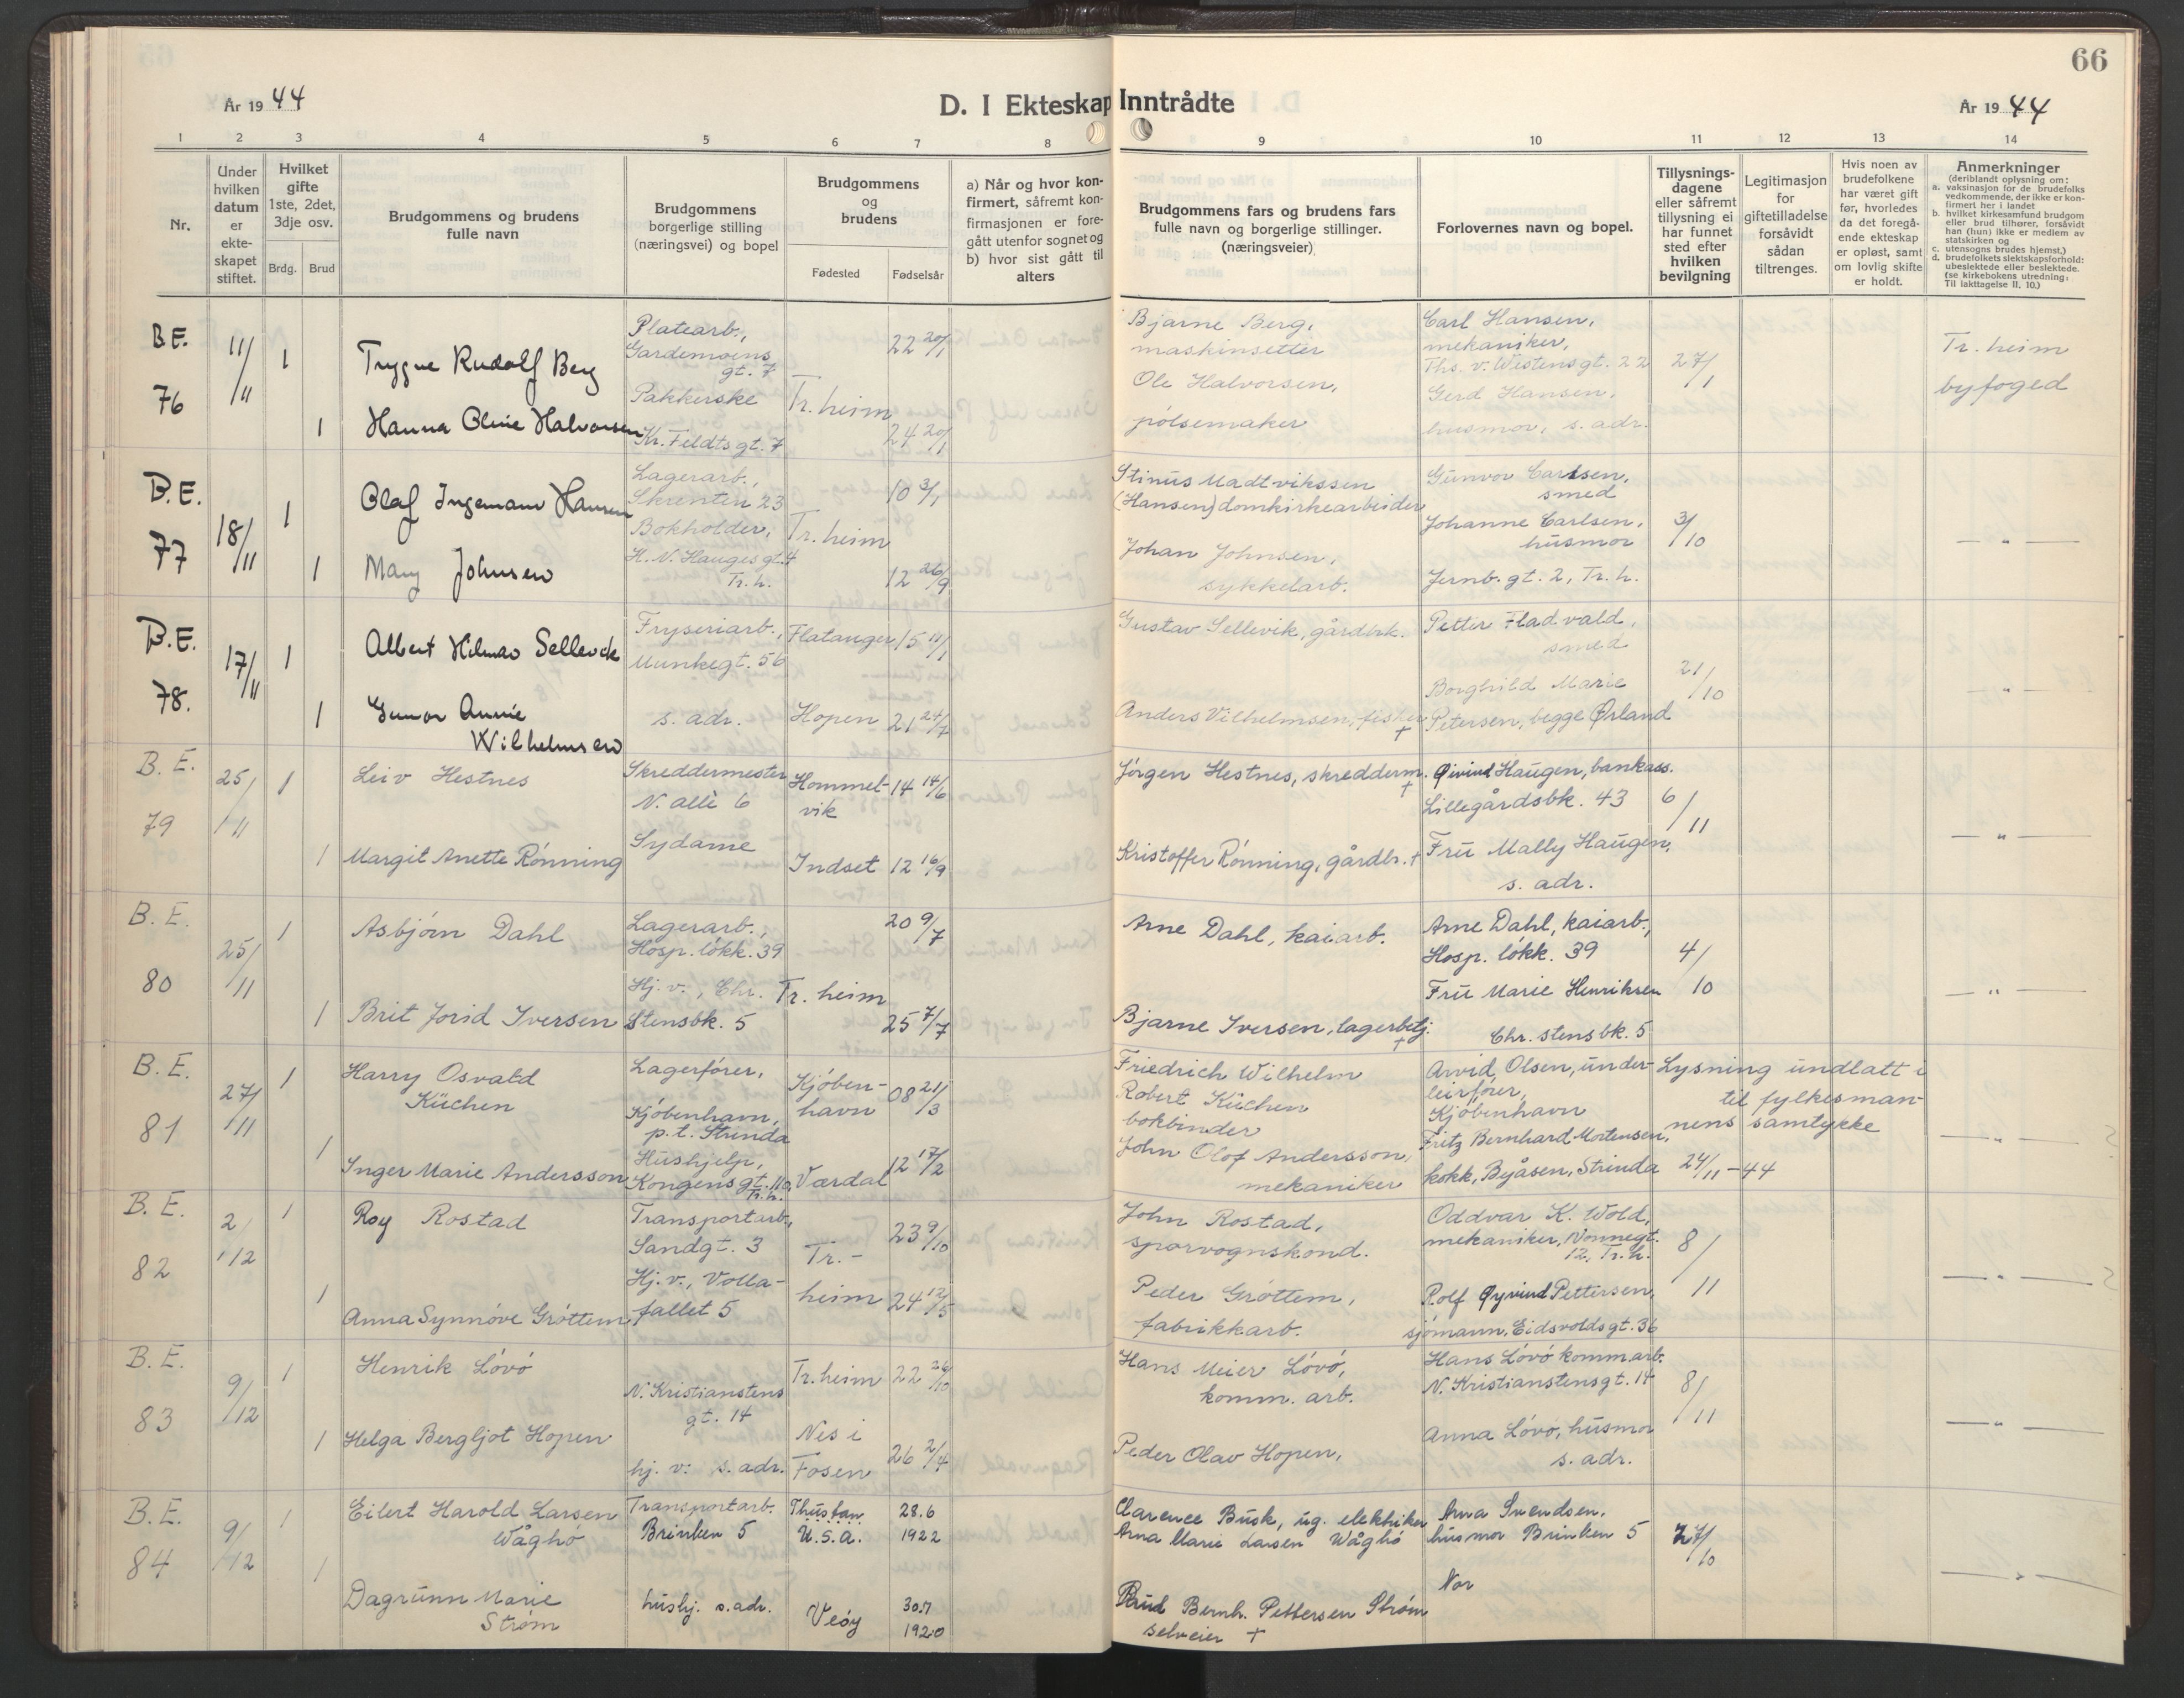 66
År 1944
D. I Ekteskap Inntrådte
År 1944
1 2 3 4 5 6 7 8 9 10 11 12 13 14
Nr.
Under hvilken datum er ekte-skapet stiftet.
Hvilket gifte 1ste, 2det, 3dje osv.
Brdg. Brud
Brudgommens og brudens fulle navn
Brudgommens borgerlige stilling (næringsvei) og bopel
Brudgommens og brudens
Fødested Fødselsår
a) Når og hvor kon-
firmert, såfremt kon-
firmasjonen er fore-
gått utenfor sognet og
b) hvor sist gått til
alters
Brudgommens fars og brudens fars
fulle navn og borgerlige stillinger.
(næringsveier)
Forlovernes navn og bopel.
Tillysnings-
dagene
eller såfremt
tillysning ei
har funnet
sted efter
hvilken
bevilgning
Legitimasjon
for
giftetilladelse
forsåvidt
sådan
tiltrenges.
Hvis noen av
brudefolkene
har været gift
før, hvorledes
da det foregå-
ende ekteskap
er opløst, samt
om lovlig skifte
er holdt.
Anmerkninger
(deriblandt oplysning om:
a. vaksinasjon for de brudefolks
vedkommende, der ikke er kon-
firmert her i landet
b. hvilket kirkesamfund brudgom
eller brud tilhører, forsåvidt
han (hun) ikke er medlem av
statskirken og
c. utensogns brudes hjemst,)
d. brudefolkets slektskapsforhold:
ubeslektede eller beslektede.
(se kirkebokens utredning:
Til Iakttagelse II. 10.)
B.E. 76
11/11
1
Trygve Rudolf Berg
Platearb., Gardemoens gt. 7
22 20/1
Bjarne Berg, maskinsetter
Carl Hansen, mekaniker,
Ths. v. Westensgt. 22
27/1
Tr. heim byfoged
1
Hanna Oline Halvorsen
Pakkerske
Kr. Feldts gt. 7
Tr. heim
24 20/1
Ole Halvorsen, pölsemaker
Gerd Hansen, husmor, s. adr.
B.E. 77
18/11
1
Olaf Ingemann Hansen
Lagerarb., Skrenten 23
10 3/1
Stinus Madtvikssen
(Hansen) domkirkearbeider
Gunvor Carlsen, smed
3/10
— „ —
1
Mary Johnsen
Bokholder, H. N. Hauges gt. 4 Tr. h.
Tr. heim
12 26/9
Johan Johnsen, sykkelarb.
Johanne Carlsen, husmor
Jernb. gt. 2, Tr. h.
B.E. 78.
17/11
1
Albert Hilmar Sellevik
Fryseriarb., Munkegt. 56
Flatanger
15 11/1
Gustav Sellevik, gårdbrk.
Petter Fladvald, smed
21/10
„
1
Gunvor Annie Wilhelmsen
s. adr.
Hopen
21 24/7
Anders Vilhelmsen, fisker +
Borghild Marie Petersen, begge Ørland
B. E. 79
25/11
1
Leiv Hestnes
Skreddermester N. allè 6
Hommel-vik
14 14/6
Jörgen Hestnes, skredderm. +
Øivind Haugen, bankass. Lillegårdsbk. 43
6/11
— „ —
1
Margit Anette Rönning
Sydame
Indset
12 16/9
Kristoffer Rönning, gårdbr. +
Fru Mally Haugen, s. adr.
B. E. 80
25/11
1
Asbjörn Dahl
Lagerarb., Hosp. lökk. 39
20 9/7
Arne Dahl, kaiarb.
Arne Dahl, kaiarb., Hosp. lökk. 39
4/10
— „ —
1
Brit Jorid Iversen
Hj. v., Chr. Stensbk. 5
Tr. heim
25 7/7
Bjarne Iversen, lagerbetj. +
Fru Marie Henriksen Chr. stensbk. 5
B. E. 81
27/11
1
Harry Osvald Küchen
Lagerförer, Kjöbenhavn, p. t. Strinda
Kjöben-havn
08 21/3
Friedrich Wilhelm Robert Küchen bokbinder
Arvid Olsen, under-leirförer, Kjöbenhavn
Lysning undlatt i
til fylkesman-
nens samtykke
24/11-44
— „ —
1
Inger Marie Andersson
Hushjelp, Kongens gt. 110, Tr. h.
Værdal
12 17/2
John Olof Andersson, mekaniker
Fritz Bernhard Mortensen, kokk, Byåsen, Strinda
B. E. 82
2/12
1
Roy Rostad
Transportarb., Sandgt. 3
Tr.-heim
23 9/10
John Rostad, sporvognskond.
Oddvar K. Wold, mekaniker, Nonnegt. 12, Tr. h.
8/11
— „ —
1
Anna Synnöve Gröttem
Hj. v., Volla-fallet 5
24 12/5
Peder Gröttem, fabrikkarb.
Rolf Øyvind Pettersen, sjömann, Eidsvoldsgt. 36
B. E. 83
9/12
1
Henrik Lövö
N. Kristianstens gt. 14
Tr. heim
22 26/10
Hans Meier Lövö, komm. arb.
Hans Lövö komm.arb. N. Kristianstensgt. 14
8/11
— „ —
1
Helga Bergljot Hopen
hj. v. s. adr.
Nes i Fosen
26 2/4
Peder Olav Hopen,
Anna Lövö, husmor s. adr.
B. E. 84
9/12
1
Eilert Harold Larsen Wåghö
Transportarb. Brinken 5
U.S.A.
28.6 1922
Clarence Busk, ug. elektriker
Arna Marie Larsen Wåghö
Arna Svendsen, husmor Brinken 5
27/10
— „ —
1
Dagrunn Marie Ström
hushj. s. adr.
Veöy
30.7 1920
Bernh. Pettersen Ström selveier +
Nor